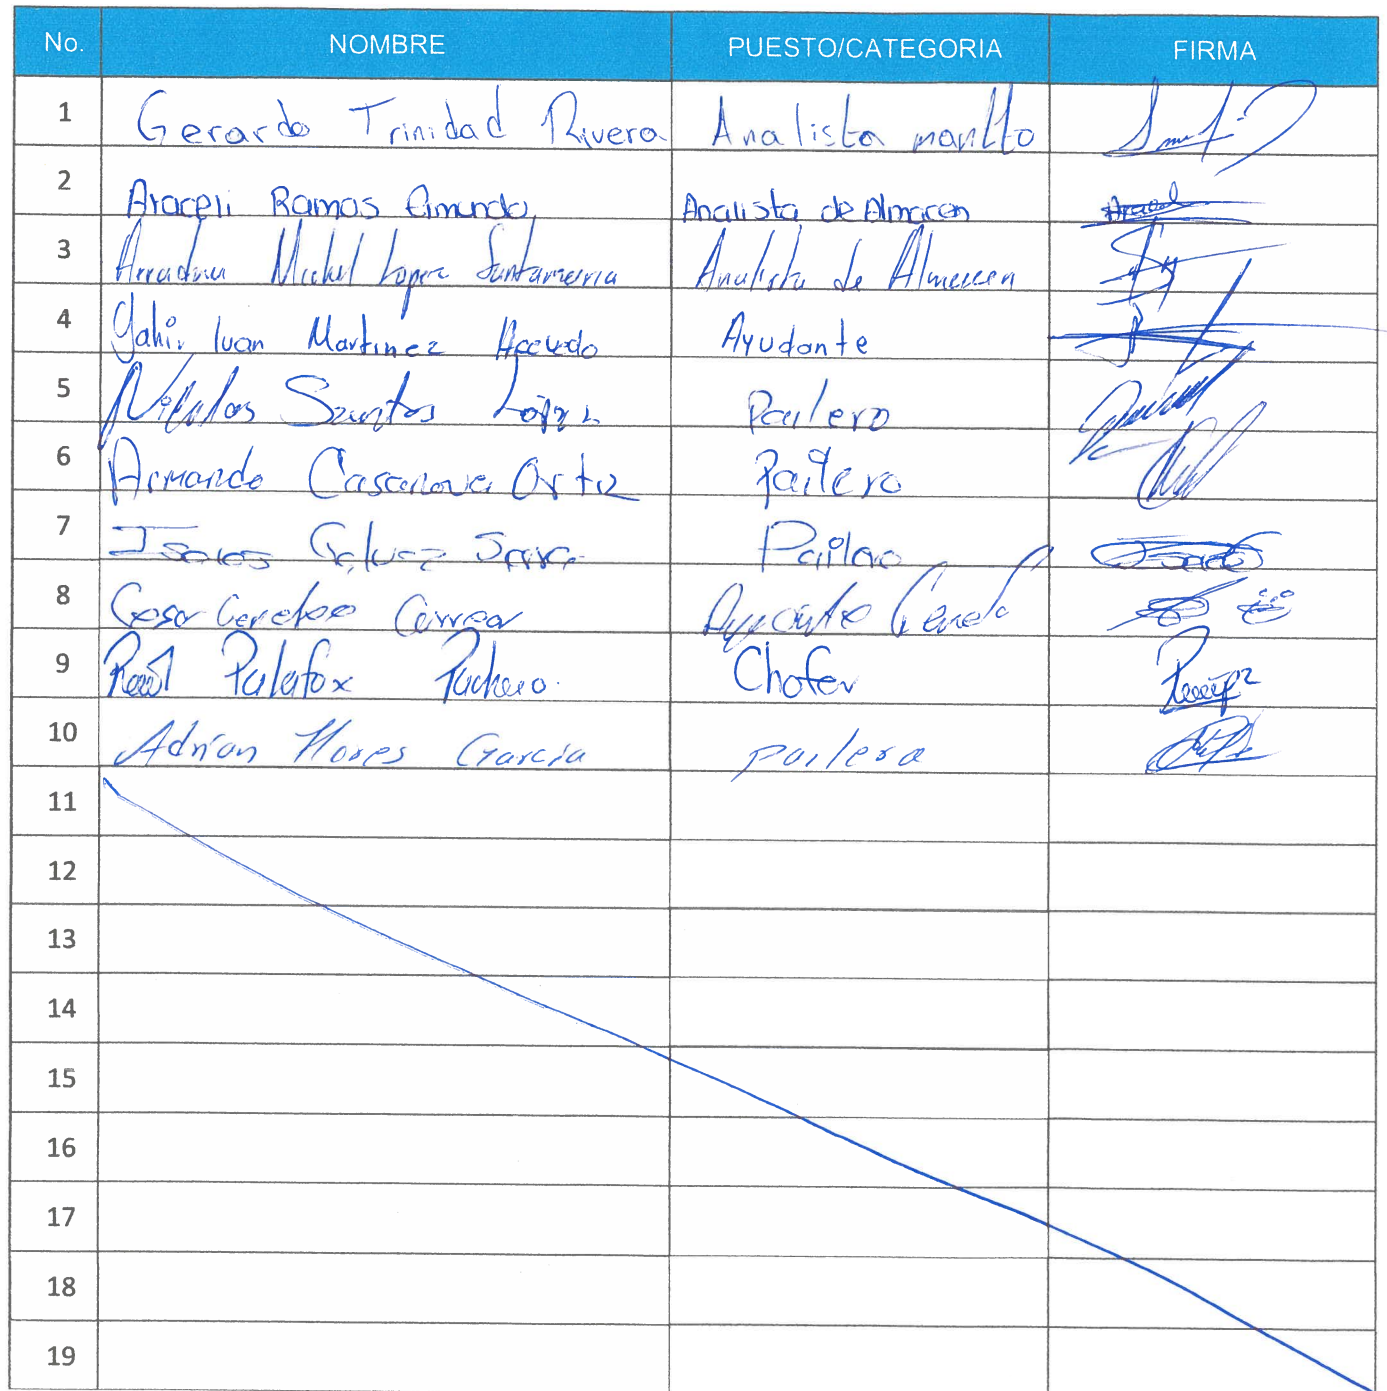 No. NOMBRE PUESTO/CATEGORIA FIRMA
1 Gerardo Trinidad Rivera Analista mantto
2 Araceli Ramos Analista de Almacen
3 Michel Lopez Santamaria Analista de Almacen
4 Yahir Ivan Martinez Acevedo Ayudante
5 Nicolas Santos López Pailero
6 Armando Casanova Ortiz Pailero
7 Galvez Pailero
8 Cesar Ayudante General
9 Raúl Palafox Pacheco. Chofer
10 Adrian Flores Garcia pailero
11
12
13
14
15
16
17
18
19